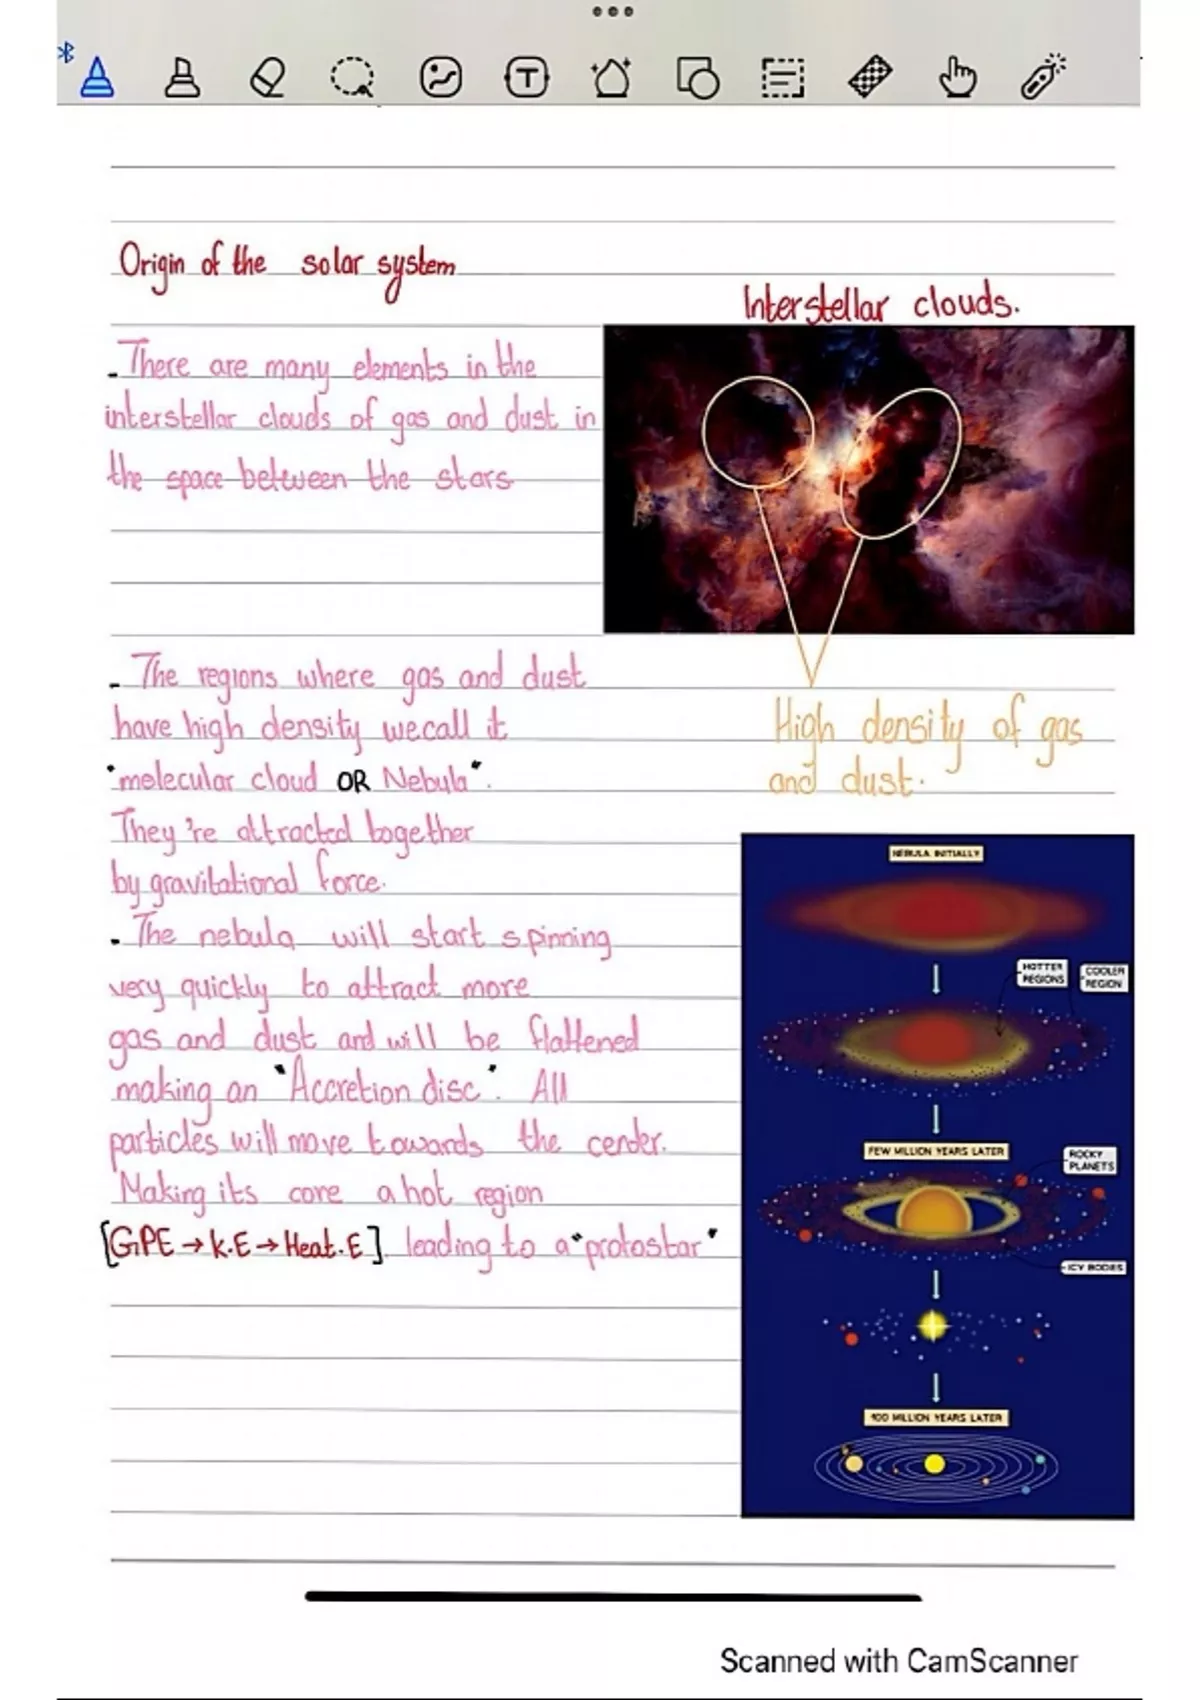 Origin of the solar system
Interstellar clouds.
- There are many elements in the
interstellar clouds of gas and dust in
the space between the stars
- The regions where gas and dust
have high density we call it
"molecular cloud OR Nebula".
They're attracted together
by gravitational force.
High density of gas
and dust.
- The nebula will start spinning
very quickly to attract more
gas and dust and will be flattened
making an "Accretion disc". All
particles will move towards the center.
Making its core a hot region
[GPE → K.E → Heat.E] leading to a "protostar"
NEBULA INITIALLY
HOTTER
REGIONS
COOLER
REGION
FEW MILLION YEARS LATER
ROCKY
PLANETS
ICY BODIES
100 MILLION YEARS LATER
Scanned with CamScanner